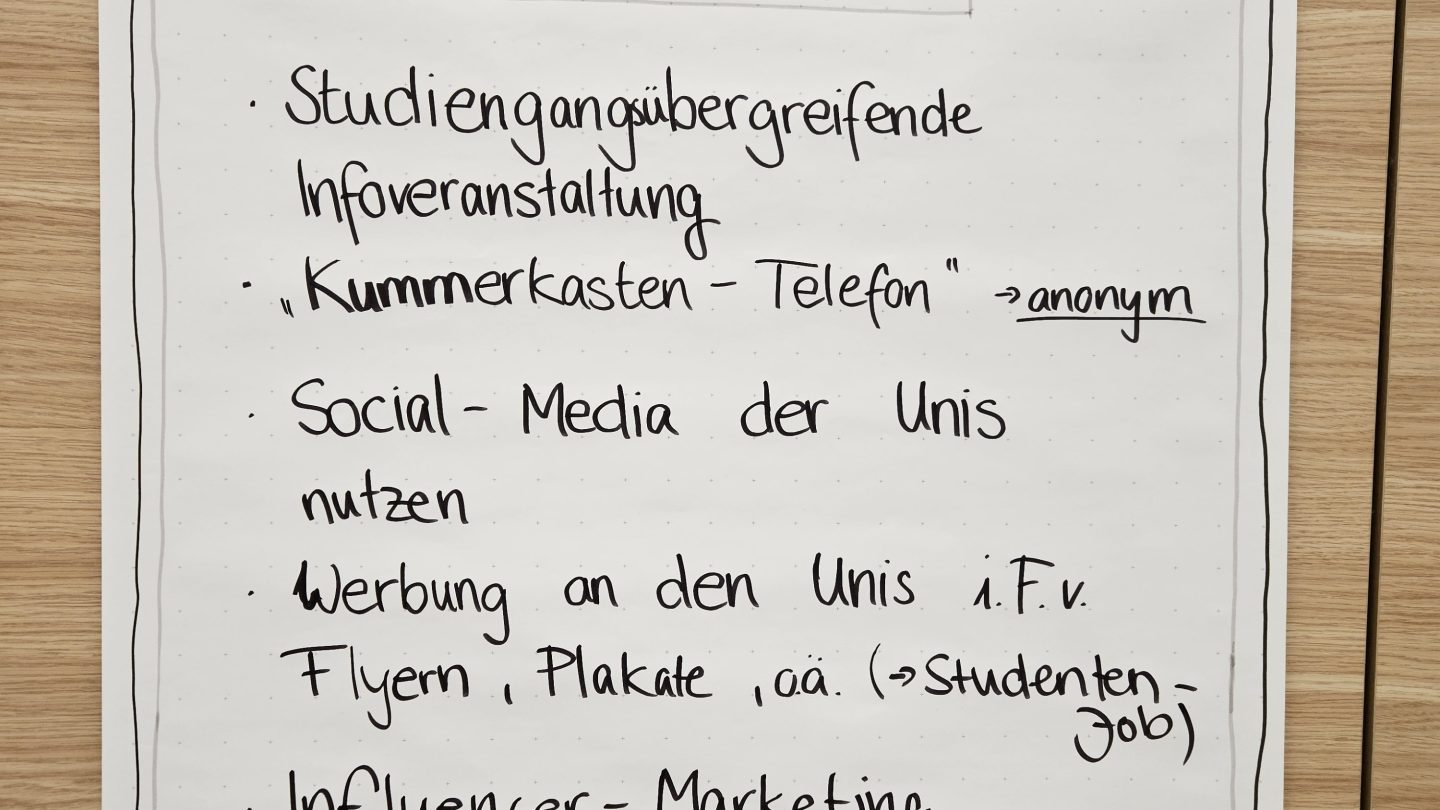 · Studiengangsübergreifende
Infoveranstaltung
· „Kummerkasten - Telefon" → anonym
· Social - Media der Unis
nutzen
· Werbung an den Unis i.F.v.
Flyern, Plakate, o.ä. (→ Studenten -
Job)
· Influencer - Marketing